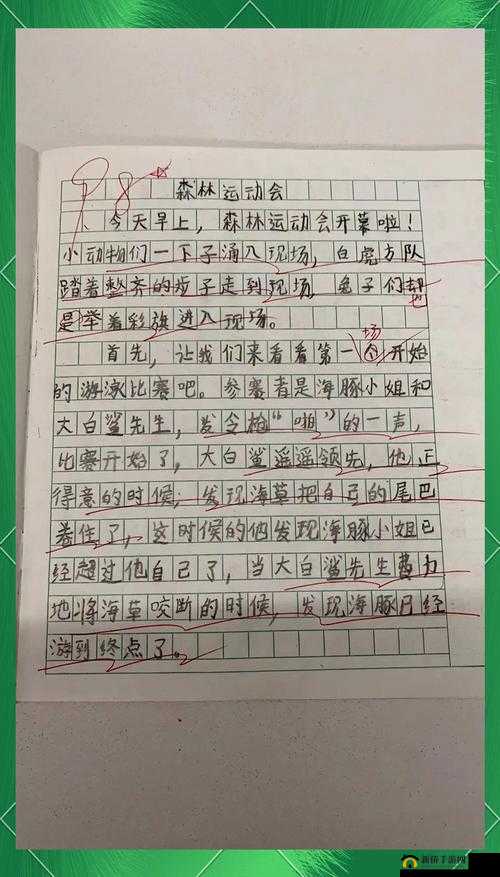 98
森林运动会
今天早上，森林运动会开幕啦！
小动物们一下子涌入现场，白虎方队
踏着整齐的步子走到现场 兔子们却
也
是举着彩旗进入现场。
场
首先，让我们来看看第一个开始
的游泳比赛吧。参赛者是海豚小姐和
大白鲨先生，发令枪“啪”的一声，
比赛开始了，大白鲨遥遥领先，他正
得意的时候，发现海草把自己的尾巴
卷住了，这时候的他发现海豚小姐已
经超过他自己了，当大白鲨先生费力
地将海草咬断的时候，发现海豚已经
游到终点了。
新侨手游网